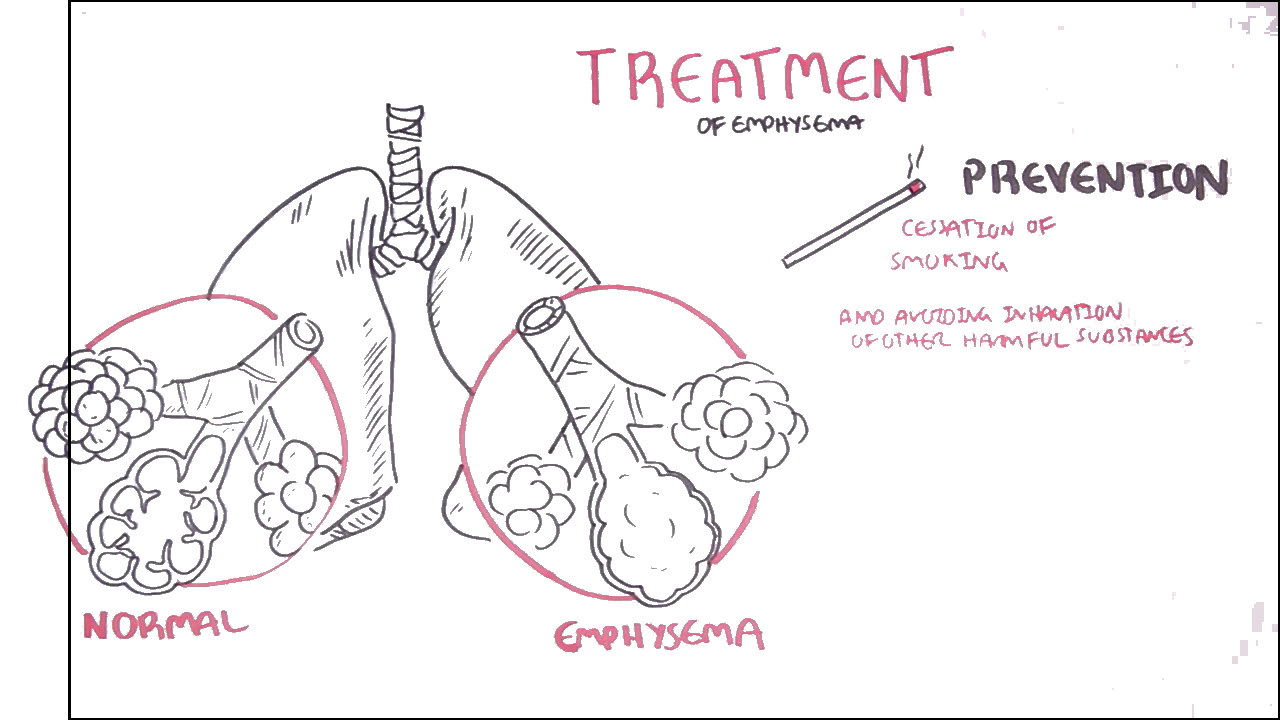 TREATMENT
OF EMPHYSEMA
PREVENTION
CESSATION OF
SMOKING
AND AVOIDING INHALATION
OF OTHER HARMFUL SUBSTANCES
NORMAL
EMPHYSEMA